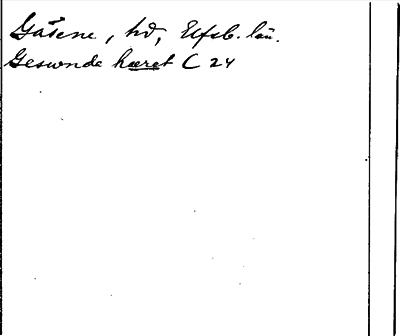 Gäsene, hd, Elfsb. län.
Geswnde hæret C 24